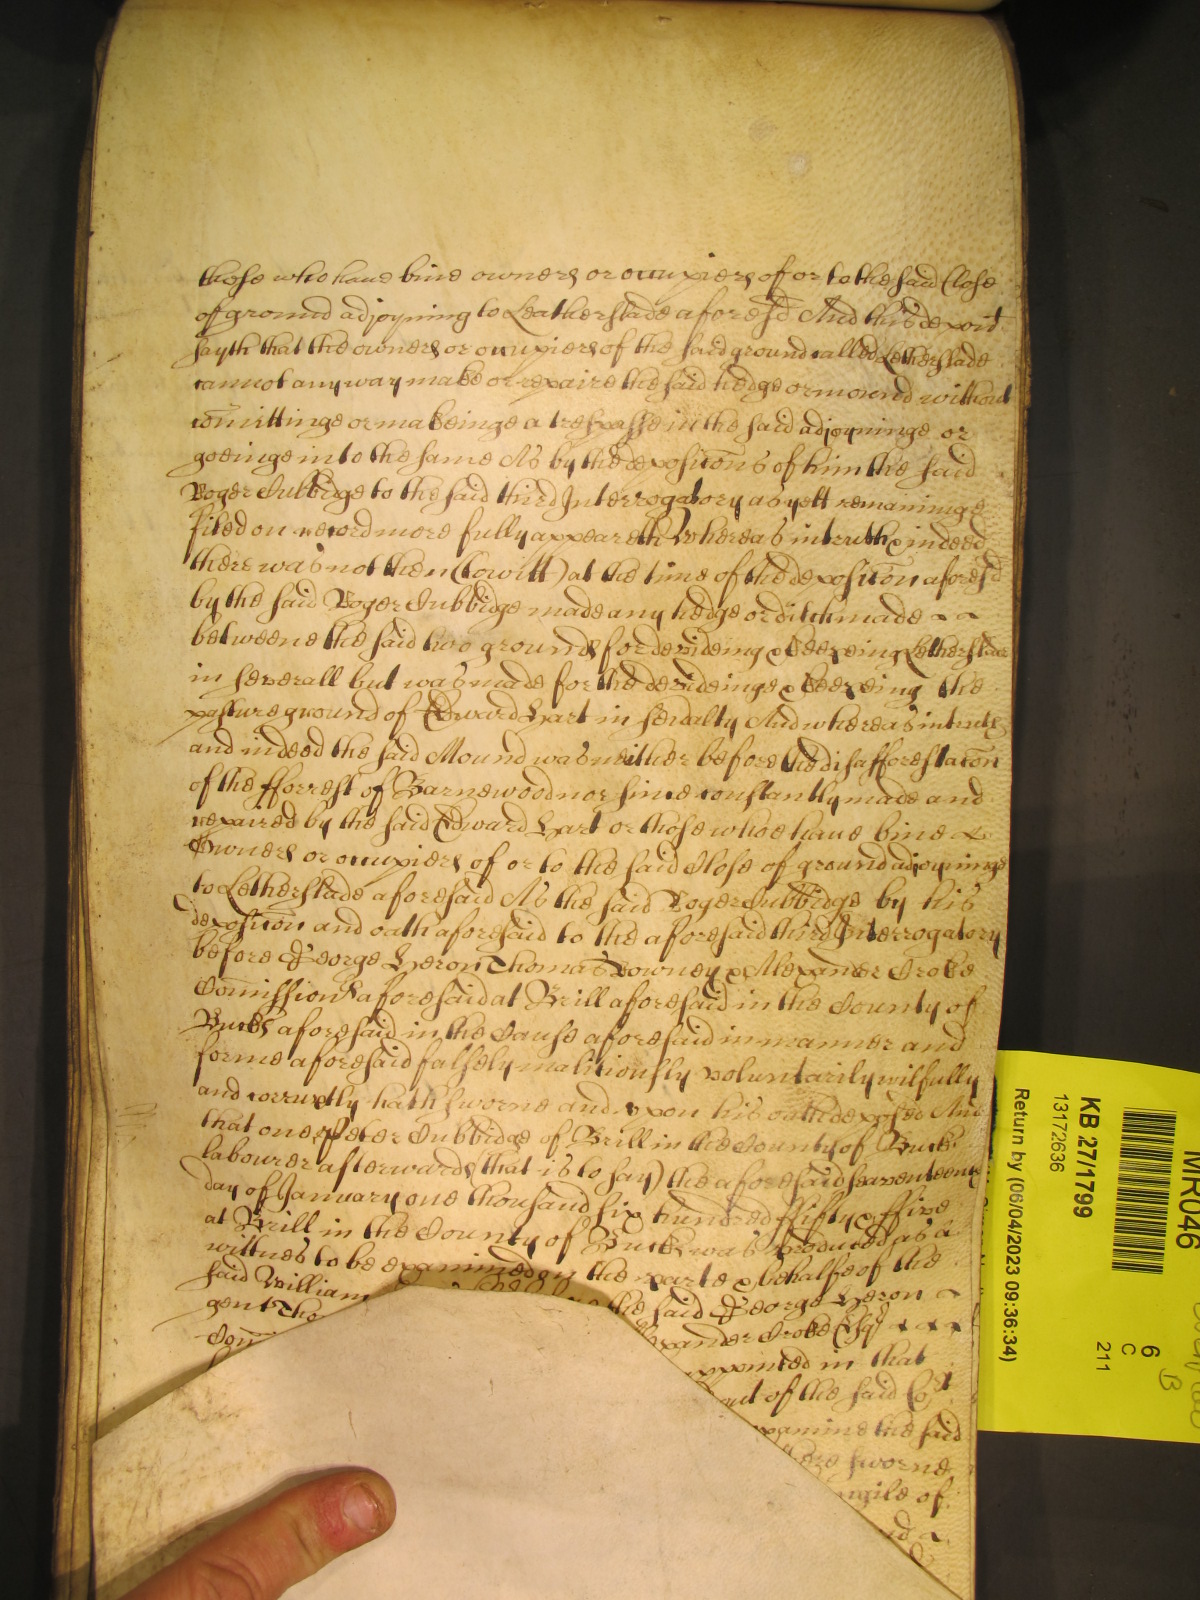 those who haue bine owners or occupiers of or to the said Close
of ground adjoyning to Leatherslade aforesd And this depont
sayth that the owners or occupiers of the said ground called Letherslade
cannot any way make or repaire the said hedge or mound without
comittinge or makeinge a trespasse in the said adjoyninge or
goeinge into the same As by the deposicons of him the said
Roger Subbidge to the said third Interrogatory as yett remaininge
filed on record more fully appeareth Whereas in truth & indeed
there was not then (towitt) at the time of the deposicon aforesd
by the said Roger Subbidge made any hedge or ditch made
betweene the said two grounds for devideing & keepeing Letherslade
in severall but was made for the devideinge & keepeing the
pasture ground of Edward Hart in sevralty And whereas in truth
and indeed the said Mound was neither before the disafforestacon
of the fforrest of Barnewood nor since constantly made and
repaired by the said Edward Hart or those whoe haue bine
Owners or occupiers of or to the said Close of ground adjoyninge
to Letherslade aforesaid As the said Roger Subbidge by his
deposicon and oath aforesaid to the aforesaid third Interrogatory
before George Heron Thomas Downey & Alexander Croke
Comissionrs aforesaid at Brill aforesaid in the County of
Bucks aforesaid in the Cause aforesaid in manner and
forme aforesaid falsely malitiously voluntarily wilfully
and corruptly hath sworne and upon his oath deposed And
that one Peter Subbidge of Brill in the County of Bucks
labourer afterwards (that is to say) the aforesaid seaventeenth
day of January one thousand six hundred ffifty & ffive
at Brill in the County of Bucks was produced as a
wittnes to be examined on the parte & behalfe of the
said William the said George Heron
gent Tho Alexander Croke Esqr
Com appointed in that
out of the said Cot
examine the said
there sworne
of